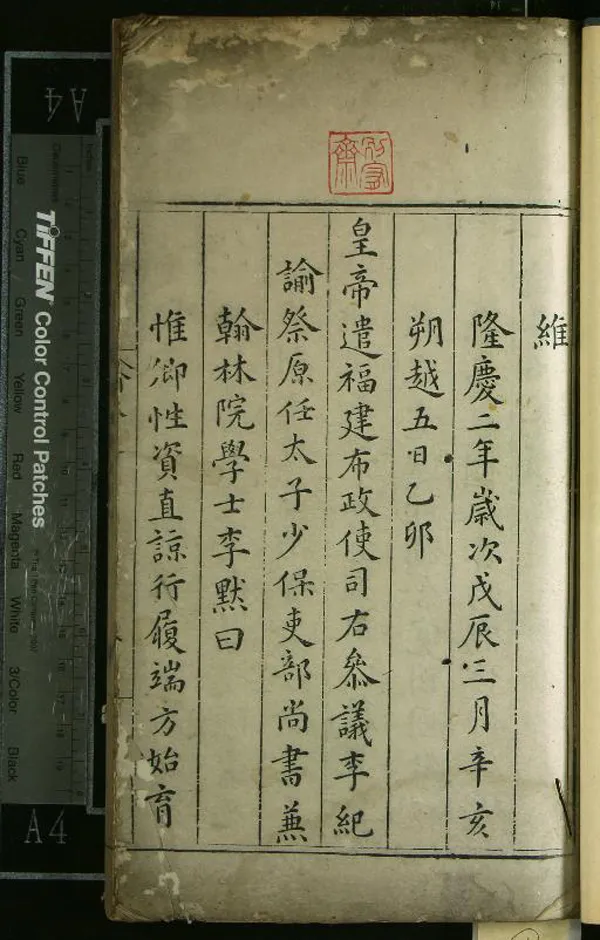 維
隆慶二年歲次戊辰三月辛亥
朔越五日乙卯
皇帝遣福建布政使司右叅議李紀
諭祭原任太子少保吏部尚書兼
翰林院學士李默曰
惟卿性資直諒行履端方始育
A4
TIFFEN Color Control Patches
Blue
Cyan
Green
Yellow
Red
Magenta
White
3/Color
Black
A4